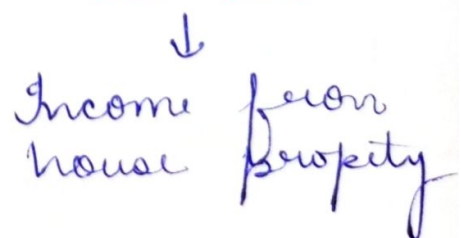 ↓
Income from
house propity